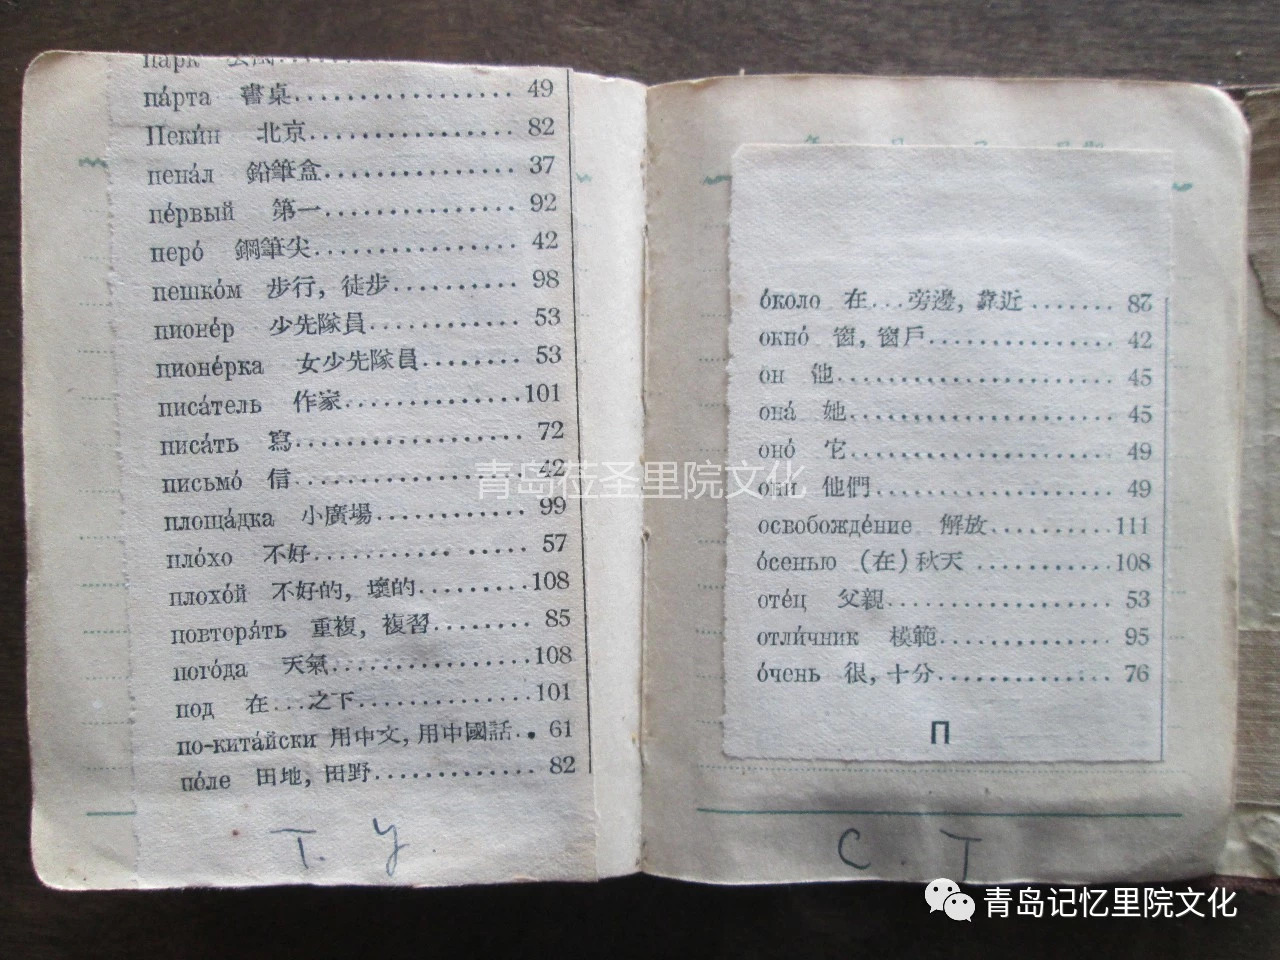 парк
па́рта 書桌................. 49
Пеки́н 北京................. 82
пена́л 鉛筆盒............... 37
пе́рвый 第一................ 92
перо́ 鋼筆尖................ 42
пешко́м 步行, 徒步........... 98
пионе́р 少先隊員............. 53
пионе́рка 女少先隊員......... 53
писа́тель 作家...............101
писа́ть 寫................... 72
письмо́ 信................... 42
площа́дка 小廣場............. 99
пло́хо 不好........... ..... 57
плохо́й 不好的, 壞的.........108
повторя́ть 重複, 複習........ 85
пого́да 天氣.................108
под 在...之下...............101
по-кита́йски 用中文, 用中國話.. 61
по́ле 田地, 田野............. 82
Т. У.
о́коло 在...旁邊, 靠近....... 83
окно́ 窗, 窗戶............... 42
он 他....................... 45
она́ 她...................... 45
оно́ 它...................... 49
они́ 他們.................... 49
освобожде́ние 解放..........111
о́сенью (在)秋天 ............108
оте́ц 父親................... 53
отли́чник 模範............... 95
о́чень 很, 十分.............. 76
П
С. Т
青岛莅圣里院文化
青岛记忆里院文化